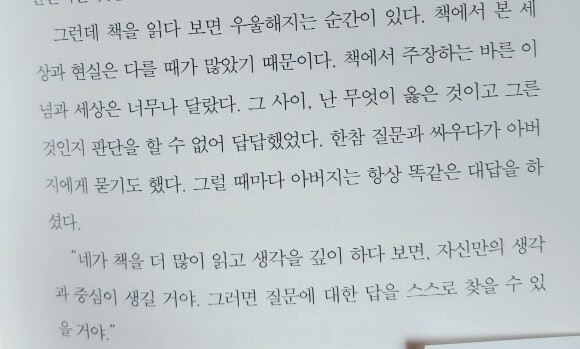 그런데 책을 읽다 보면 우울해지는 순간이 있다. 책에서 본 세
상과 현실은 다를 때가 많았기 때문이다. 책에서 주장하는 바른 이
념과 세상은 너무나 달랐다. 그 사이, 난 무엇이 옳은 것이고 그른
것인지 판단을 할 수 없어 답답했었다. 한참 질문과 싸우다가 아버
지에게 묻기도 했다. 그럴 때마다 아버지는 항상 똑같은 대답을 하
셨다.
“네가 책을 더 많이 읽고 생각을 깊이 하다 보면, 자신만의 생각
과 중심이 생길 거야. 그러면 질문에 대한 답을 스스로 찾을 수 있
을 거야.”